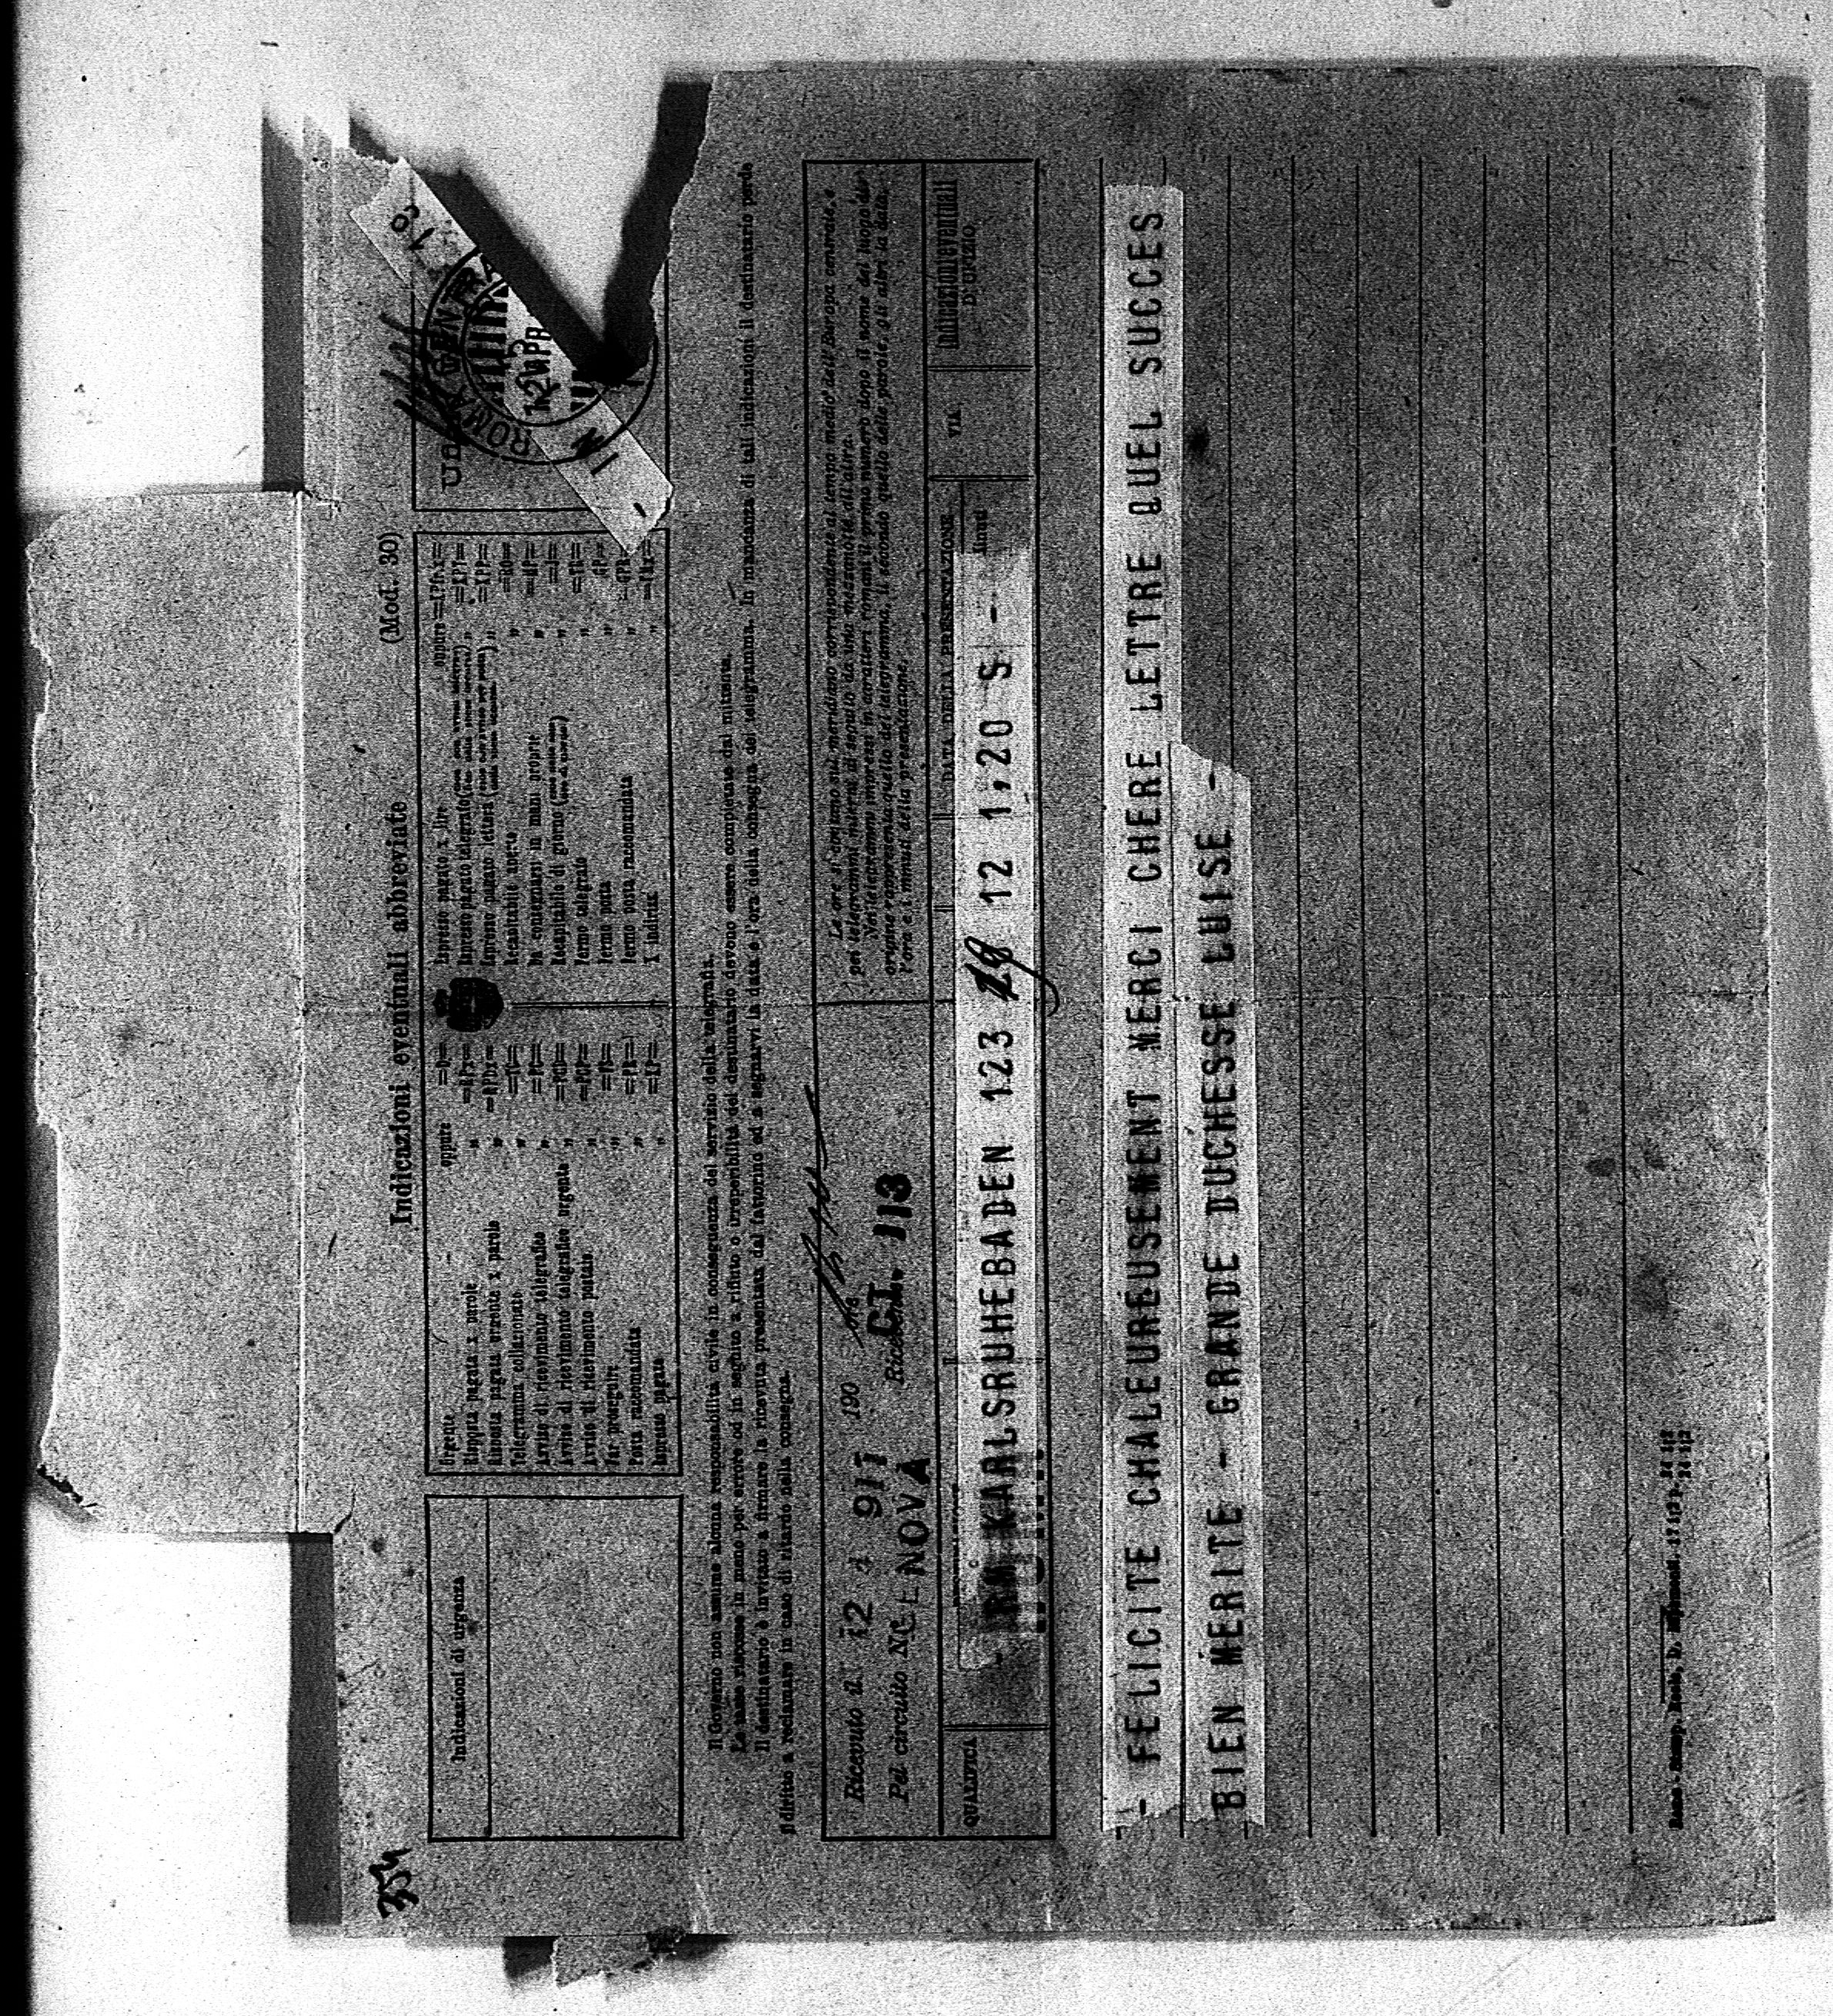 354
Indicazioni di urgenza
Indicazioni eventuali abbreviate
(Mod. 30)
Urgente oppure =D=
Risposta pagata x parole " =RPx=
Risposta pagata urgente x parole " =RPDx=
Telegramma collazionato " =TC=
Avviso di ricevimento telegrafico " =PC=
Avviso di ricevimento telegrafico urgente " =PCD=
Avviso di ricevimento postale " =PCP=
Far proseguire " =FS=
Posta raccomandata " =PR=
Espresso pagato " =XP=
Espresso pagato x lire oppure =XPfr.x=
Espresso pagato telegrafo " =XPT=
Espresso pagato lettera " =XPP=
Recapitabile aperto " =RO=
Da consegnarsi in mani proprie " =MP=
Recapitabile di giorno " =J=
Fermo telegrafo " =TR=
Fermo posta " =GP=
Fermo posta raccomandata " =GPR=
X indirizzi " =TMx=
ROMA CENTRALE
12 APR
Il Governo non assume alcuna responsabilità civile in conseguenza del servizio della telegrafia.
Le tasse riscosse in meno per errore od in seguito a rifiuto o irreperibilità del destinatario devono essere completate dal mittente.
Il destinatario è invitato a firmare la ricevuta presentata dal fattorino ed a segnarvi la data e l'ora della consegna del telegramma. In mancanza di tali indicazioni il destinatario perde
il diritto a reclamare in caso di ritardo nella consegna.
Ricevuto il 12 4 911 190 ore
Pel circuito N. GENOVA Ricevente CI. 113
Le ore si contano sul meridiano corrispondente al tempo medio dell'Europa centrale, e
pei telegrammi interni di seguito da una mezzanotte all'altra.
Nei telegrammi impressi in caratteri romani il primo numero dopo il nome del luogo di
origine rappresenta quello del telegramma, il secondo quello delle parole, gli altri la data,
l'ora e i minuti della presentazione.
QUALIFICA
DATA DELLA PRESENTAZIONE
VIA
Indicazioni eventuali
D'UFFIZIO
RM KARLSRUHEBADEN 123 19 12 1,20 S -
- FELICITE CHALEUREUSEMENT MERCI CHERE LETTRE QUEL SUCCES
BIEN MERITE - GRANDE DUCHESSE LUISE -